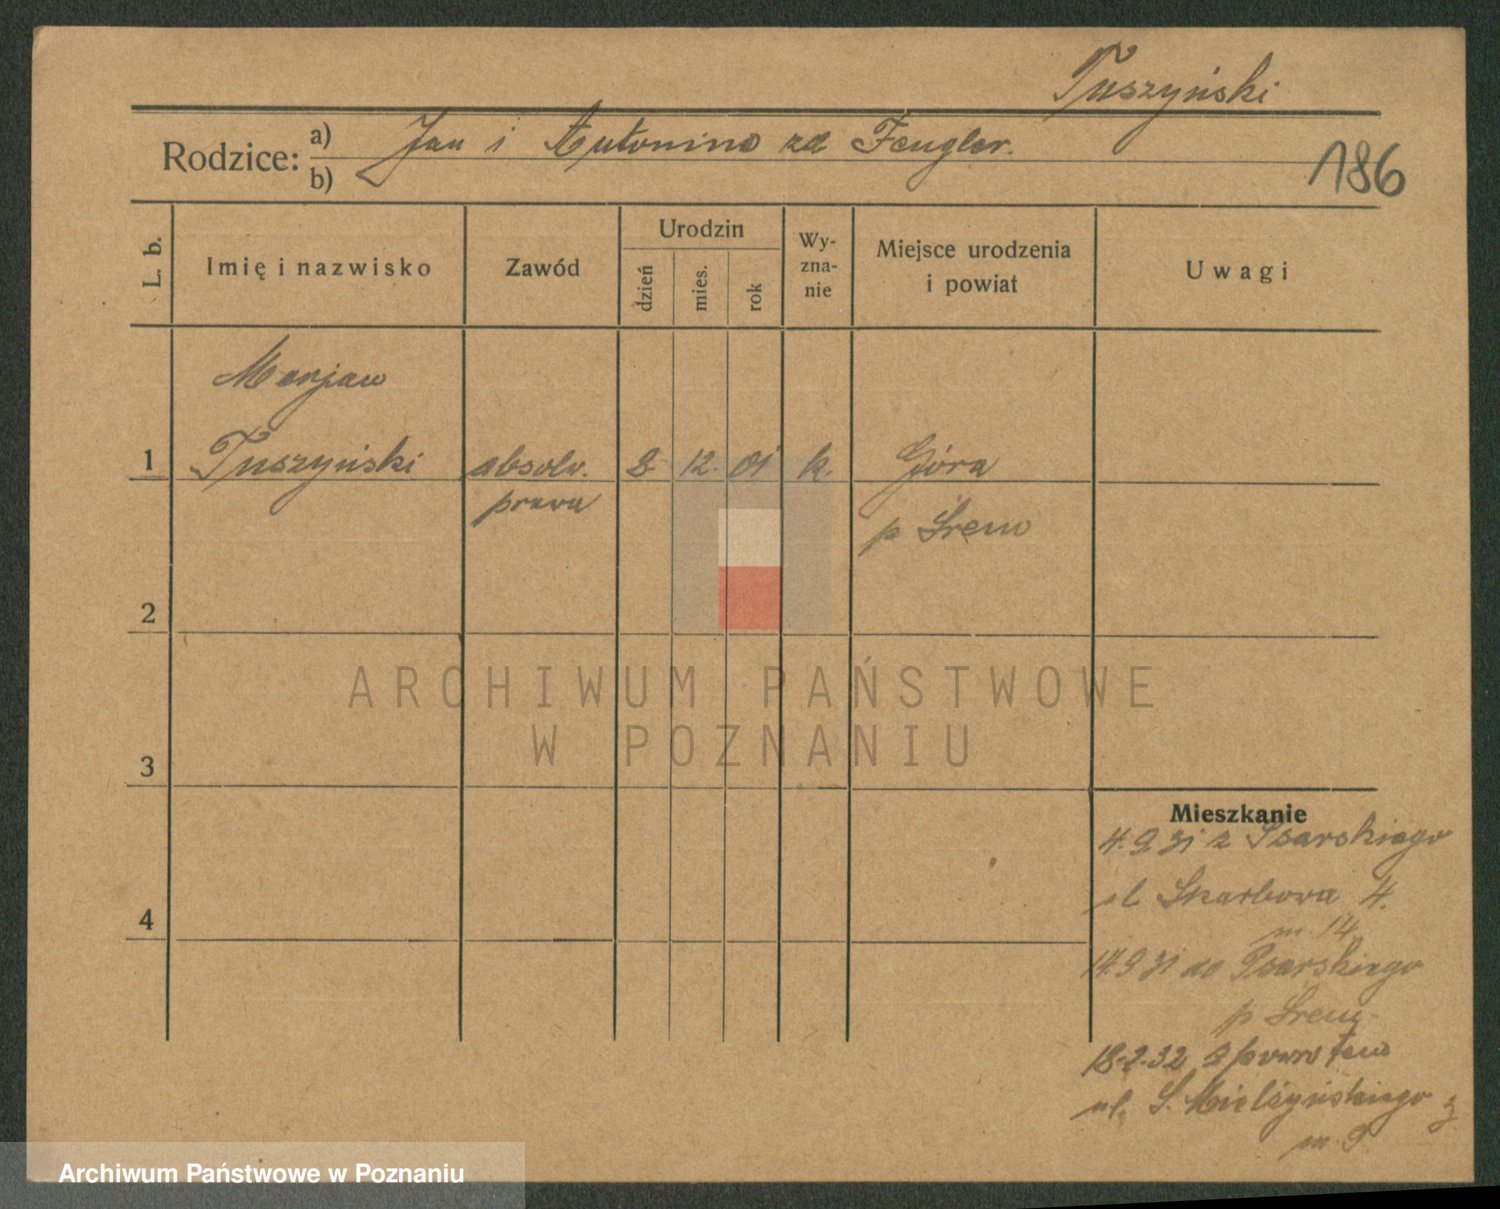 Tuszyński
Rodzice: a) Jan i Antonina zd Fengler.
b)
186
L. b.
Imię i nazwisko
Zawód
Urodzin
dzień
mies.
rok
Wy-
zna-
nie
Miejsce urodzenia
i powiat
Uwagi
Marjan
1 Tuszyński absolw. 8 12. 01 k. Góra
prawa
p Śrem
2
ARCHIWUM PAŃSTWOWE
W POZNANIU
3
Mieszkanie
4.9.31 z Psarskiego
ul Skarbowa 4.
m 14
4
14.9.31 do Psarskiego
p Śrem
18.2.32 z powrotem
ul. S. Mielżyńskiego 3
m 9.
Archiwum Państwowe w Poznaniu